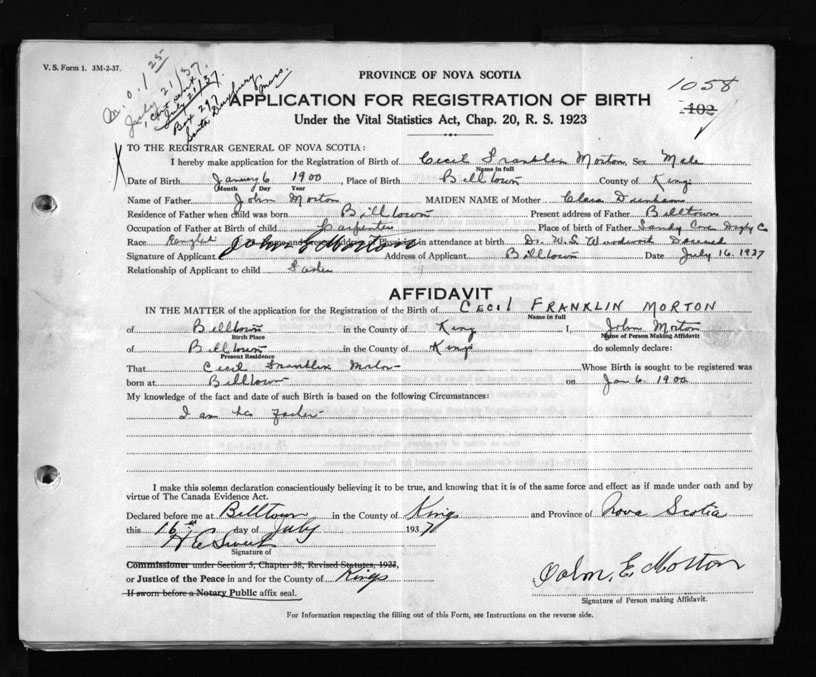 V. S. Form 1. 3M-2-37.
M. O. 1 25
July 21/37.
1 Cert sent
July 21/37.
Box 297
South Duxbury,
Mass.
PROVINCE OF NOVA SCOTIA
1058
APPLICATION FOR REGISTRATION OF BIRTH
102
Under the Vital Statistics Act, Chap. 20, R. S. 1923
TO THE REGISTRAR GENERAL OF NOVA SCOTIA:
I hereby make application for the Registration of Birth of Cecil Franklin Morton, Sex Male
Name in full
Date of Birth January 6 1900, Place of Birth Billtown County of Kings
Month Day Year
Name of Father John Morton MAIDEN NAME of Mother Clara Dunham
Residence of Father when child was born Billtown Present address of Father Billtown
Occupation of Father at Birth of child Carpenter Place of Birth of Father Sandy Cove Digby Co
Race English Name and address of Physician in attendance at birth Dr. W. S. Woodworth Deceased
Signature of Applicant John E Morton Address of Applicant Billtown Date July 16. 1937
Relationship of Applicant to child Father
AFFIDAVIT
IN THE MATTER of the application for the Registration of the Birth of CECIL FRANKLIN MORTON
Name in full
of Billtown in the County of King I, John Morton
Birth Place Name of Person Making Affidavit
of Billtown in the County of Kings do solemnly declare:
Present Residence
That Cecil Franklin Morton Whose Birth is sought to be registered was
born at Billtown on Jan 6. 1900
My knowledge of the fact and date of such Birth is based on the following Circumstances:
I am his Father
I make this solemn declaration conscientiously believing it to be true, and knowing that it is of the same force and effect as if made under oath and by
virtue of The Canada Evidence Act.
Declared before me at Billtown in the County of Kings and Province of Nova Scotia
this 16th day of July 1937
H E Sweet
Signature of
Commissioner under Section 5, Chapter 38, Revised Statutes, 1923,
or Justice of the Peace in and for the County of Kings
If sworn before a Notary Public affix seal.
John. E. Morton
Signature of Person making Affidavit.
For Information respecting the filling out of this Form, see Instructions on the reverse side.